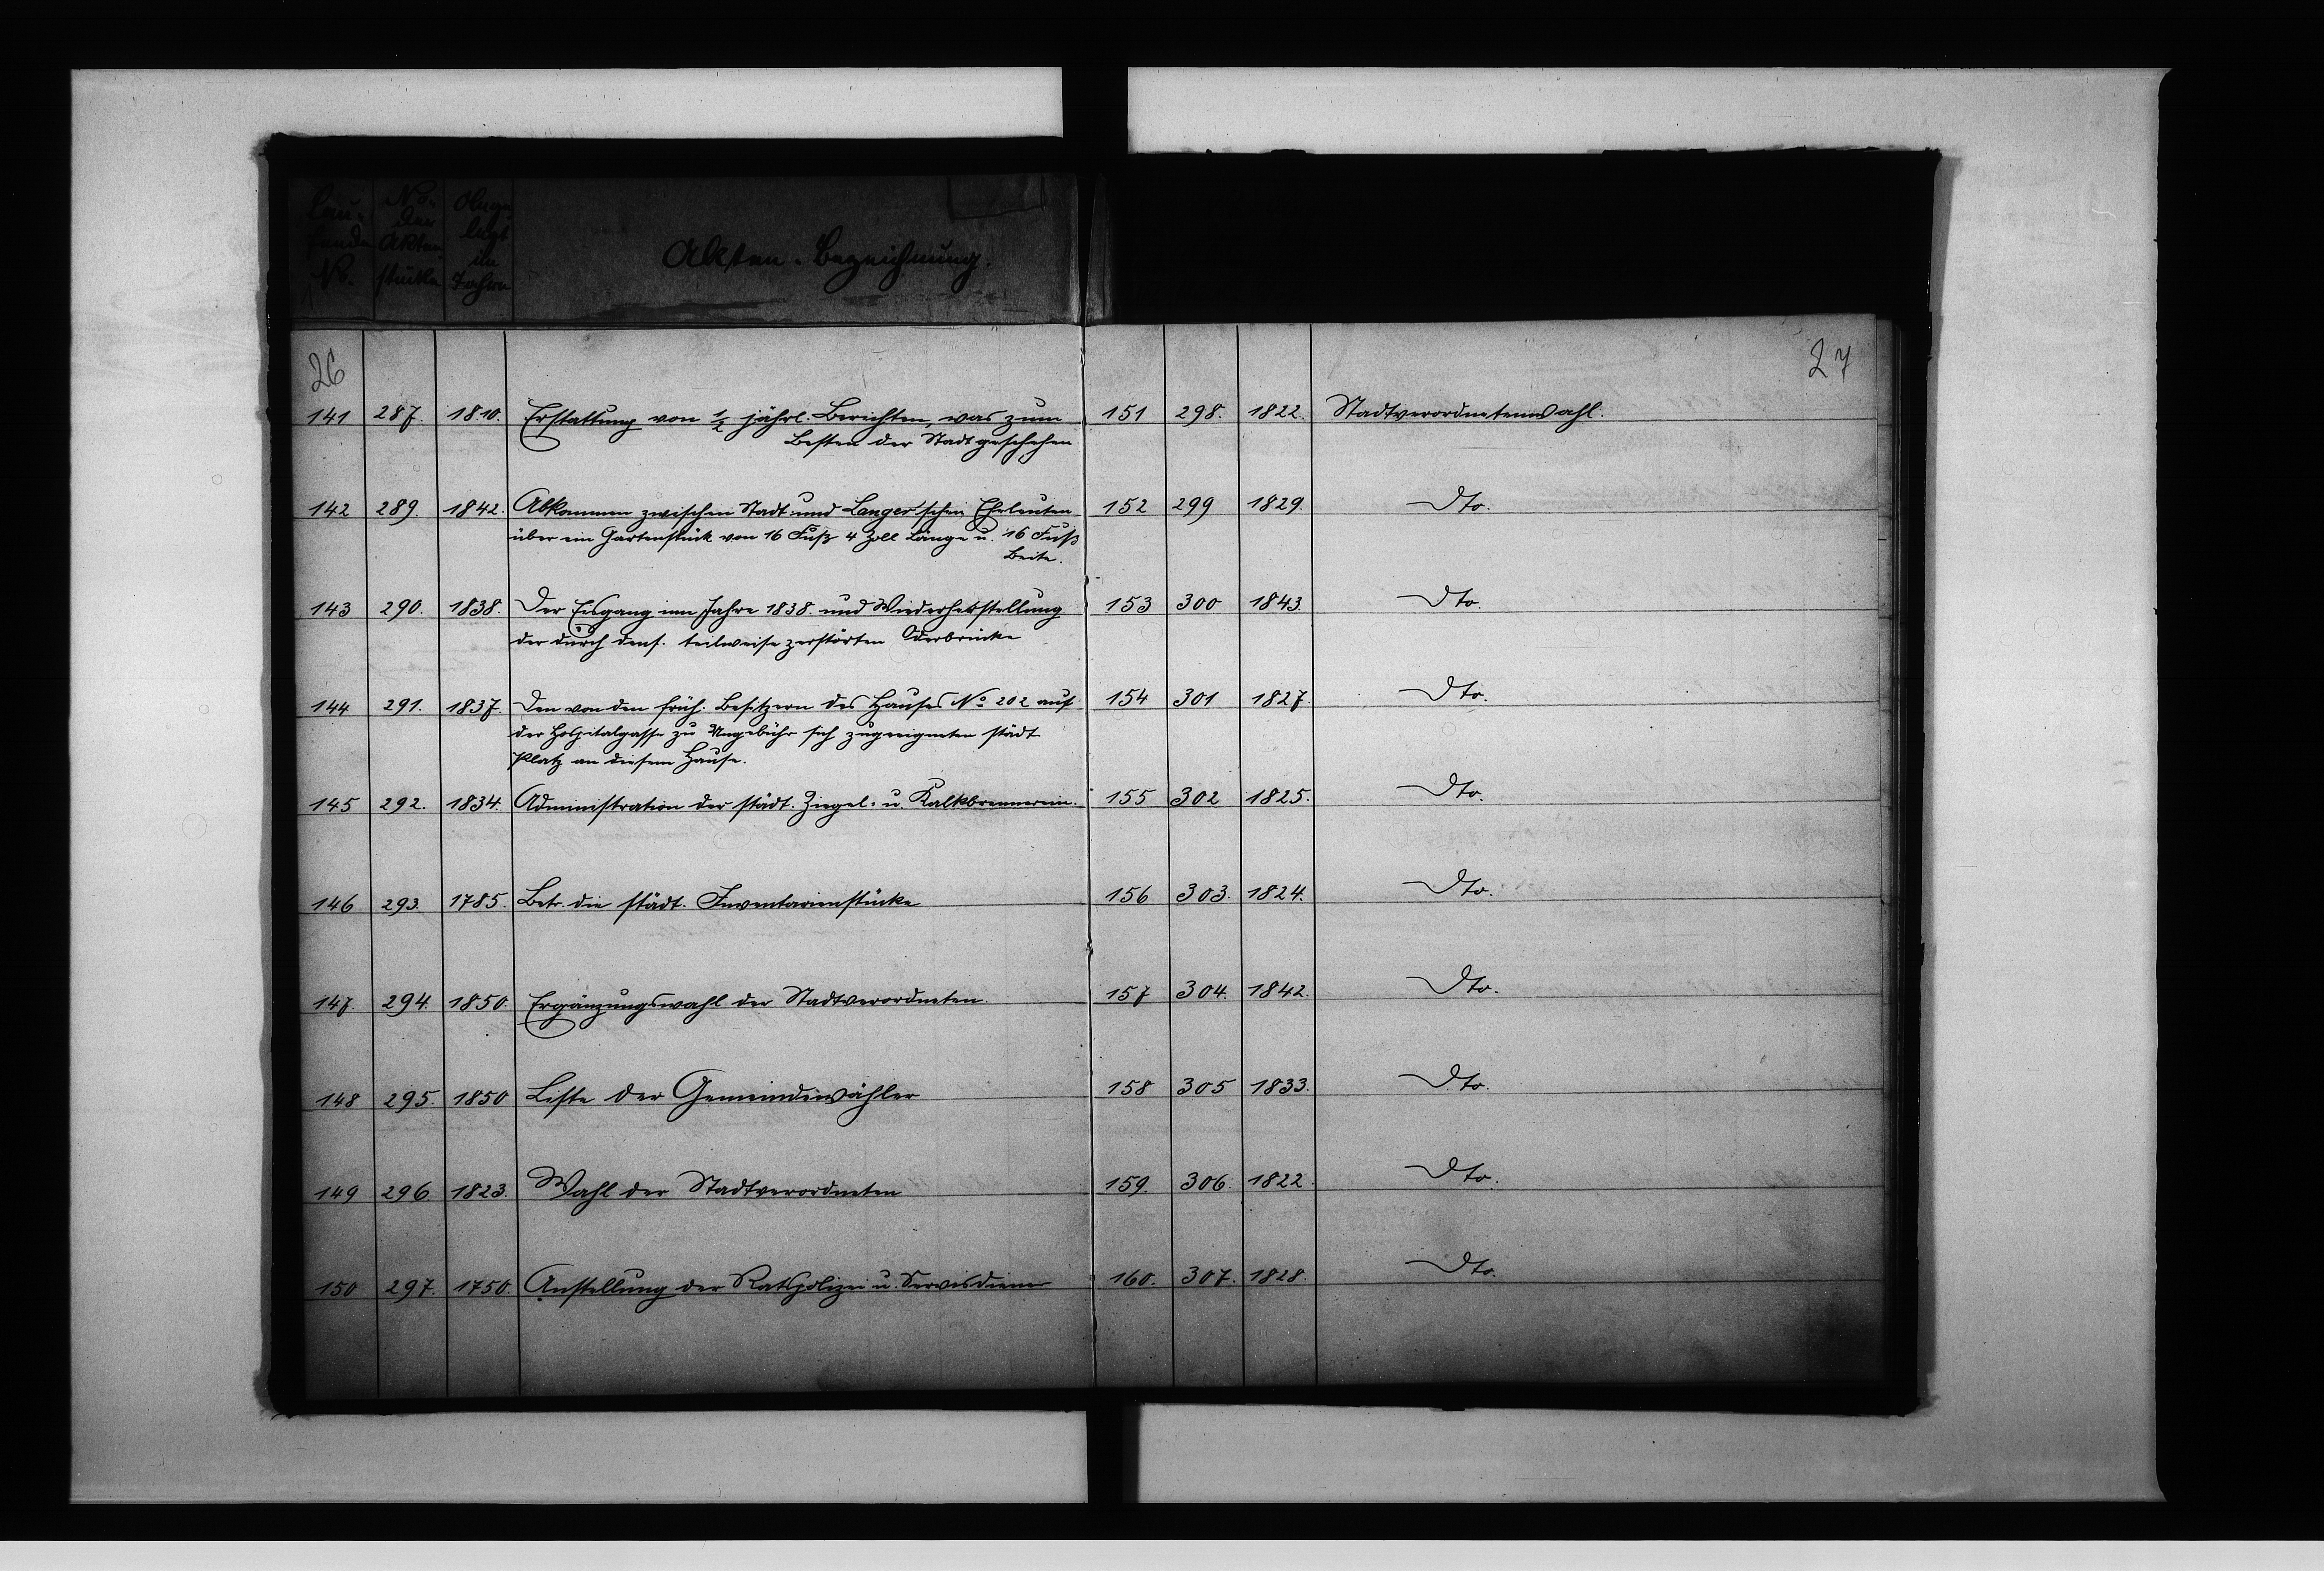 Lau-
fende
No.
No.
der
Akten
stücke
Ange-
legt
im
Jahre
Akten-Bezeichnung.
26
141 287. 1810. Erstattung von 1/2 jährl. Berichten, was zum
Besten der Stadt geschehen
142 289. 1842. Abkommen zwischen Stadt und Langer'schen Eheleuten
über ein Gartenstück von 16 Fuß 4 Zoll Länge u. 16 Fuß
Beite.
143 290. 1838. Der Eisgang im Jahre 1838. und Wiederherstellung
der durch dens. teilweise zerstörten Oderbrücke
144 291. 1837. Den von den früh. Besitzern des Hauses No 202 auf
der Hospitalgasse zu Ungebühr sich zugeeigneten städt
Platz an diesem Hause.
145 292. 1834. Administration der städt. Ziegel- u. Kalkbrennerein.
146 293. 1785. Betr. die städt. Inventarienstücke
147. 294. 1850. Ergänzungswahl der Stadtverordneten.
148 295. 1850 Liste der Gemeindewähler
149 296 1823. Wahl der Stadtverordneten
150 297. 1750. Anstellung der Ratspolizei u. Servisdiener
27
151 298. 1822. Stadtverordnetenwahl.
152 299 1829. Dto.
153 300 1843. Dto.
154 301 1827. Dto.
155 302 1825. Dto.
156 303. 1824. Dto.
157 304. 1842. Dto.
158 305 1833. Dto.
159. 306. 1822. Dto.
160. 307. 1828. Dto.